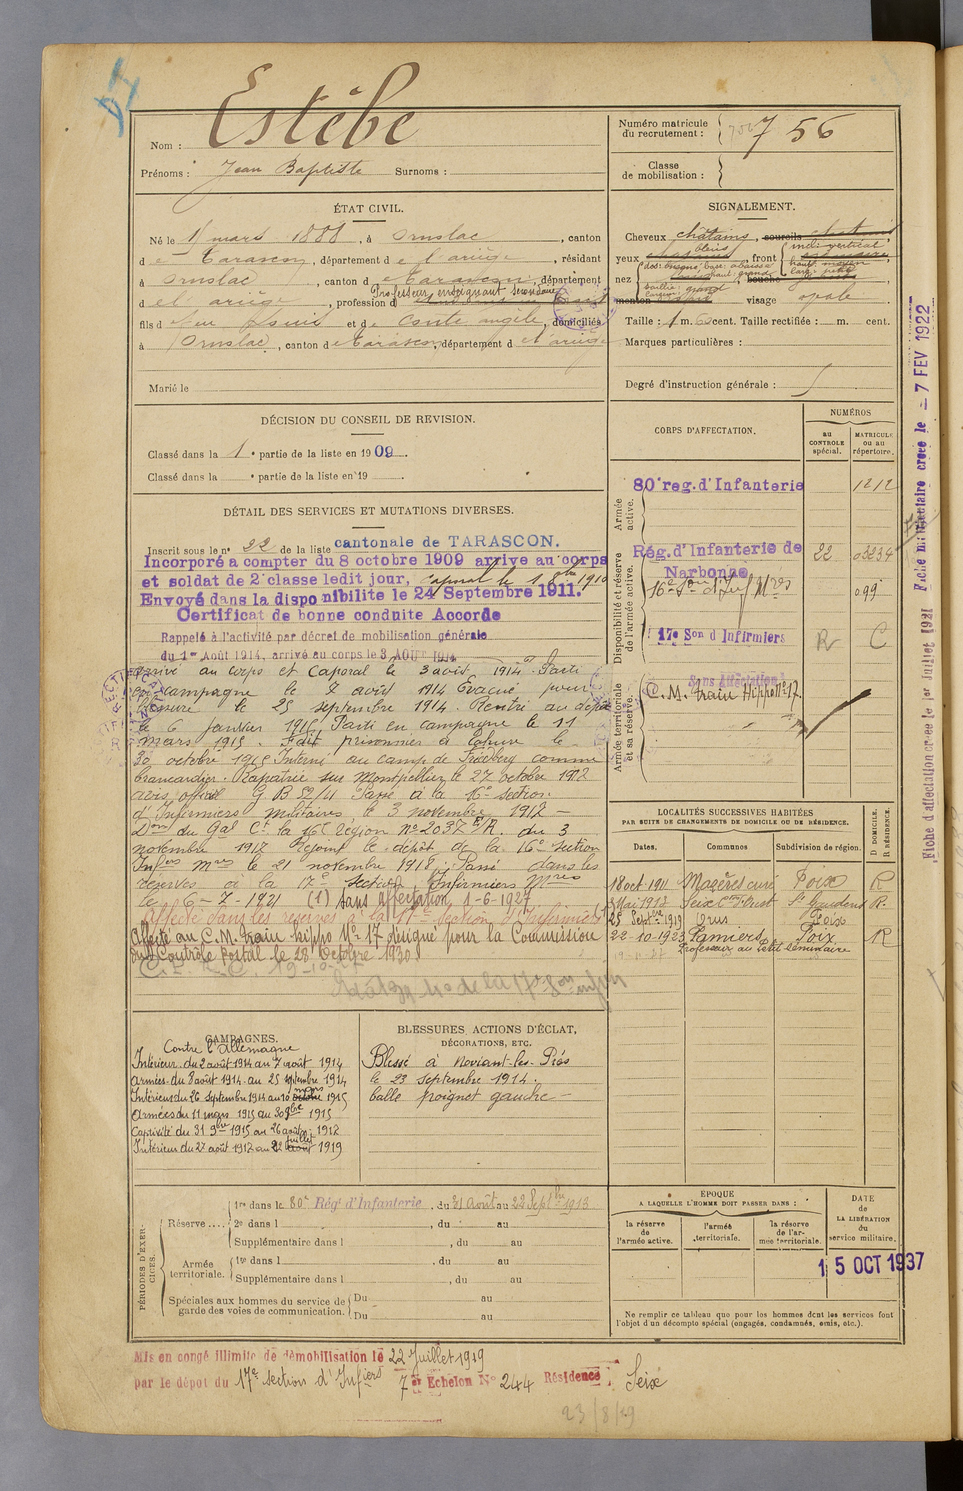 Estèbe
Nom :
Prénoms : Jean Baptiste Surnoms :
Numéro matricule du recrutement : 756
Classe de mobilisation :
ÉTAT CIVIL.
Né le 1 mars 1888, à Ornolac, canton
de Tarascon, département de l'ariège, résidant
à Ornolac, canton de Tarascon, département
Professeur enseignant secondaire
de l'ariège, profession d
fils de feu Louis et de Conte angèle, domiciliés
à Ornolac, canton de Tarascon, département de l'ariège
Marié le
SIGNALEMENT.
Cheveux châtains, sourcils
yeux bleus, front incl: vertical
nez dos: base: abaissé haut: grande
saillie: grand
menton visage ovale
Taille : 1 m. 60 cent. Taille rectifiée : m. cent.
Marques particulières :
Degré d'instruction générale : 5
DÉCISION DU CONSEIL DE REVISION.
Classé dans la 1e partie de la liste en 1909.
Classé dans la e partie de la liste en 19
DÉTAIL DES SERVICES ET MUTATIONS DIVERSES.
Inscrit sous le n° 22 de la liste cantonale de TARASCON.
Incorporé a compter du 8 octobre 1909 arrive au corps
et soldat de 2e classe ledit jour, caporal le 1 8bre 1910
Envoyé dans la disponibilité le 24 Septembre 1911.
Certificat de bonne conduite Accordé
Rappelé à l'activité par décret de mobilisation générale
du 1er Août 1914, arrivé au corps le 3 AOUT 1914
Arrivé au corps et Caporal le 3 août 1914. Parti
en campagne le 7 août 1914 Evacué pour
blessure le 25 septembre 1914. Rentré au dépôt
le 6 Janvier 1915. Parti en campagne le 11
mars 1915. Fait prisonnier à Tahure le
30 octobre 1915 Interné au camp de Friedberg comme
brancardier. Rapatrié sur Montpellier le 27 octobre 1917
avis officiel G B 52/41 Passé à la 16e section
d'Infirmiers militaires le 3 novembre 1917 –
Don du Gal Ct la 16e Région No 2037 E/R. du 3
novembre 1917 Rejoint le dépôt de la 16e section
Infers Mres le 21 novembre 1918. Passé dans les
réserves à la 17e section Infirmiers Mres
le 6-7-1921 (1) sans affectation 1-6-1927
Affecté dans les réserves à la 17e Section d'Infirmiers
Affecté au C.M. train hippo No 17 désigné pour la Commission
du Contrôle postal le 28 Octobre 1930
CORPS D'AFFECTATION.
NUMÉROS
au CONTROLE spécial.
MATRICULE ou au répertoire.
Armée active.
80e reg. d'Infanterie 1212
Disponibilité et réserve de l'armée active.
Rég. d'Infanterie de Narbonne 22 03234
16e Son d'Inf Mres 099
17e Son d'Infirmiers R C
Armée territoriale et sa réserve.
Sans Affectation
C.M. train Hippo No 17.
LOCALITÉS SUCCESSIVES HABITÉES
PAR SUITE DE CHANGEMENTS DE DOMICILE OU DE RÉSIDENCE.
Dates. Communes Subdivision de région. D DOMICILE. R RÉSIDENCE.
18 oct 1911 Mazères curé Foix R
Mai 1912 Seix St Gaudens R.
25 Septbre 1919 Foix
22-10-1923 Pamiers Foix R
Professeur au Petit Séminaire
CAMPAGNES.
Contre l'Allemagne
Intérieur du 2 août 1914 au 7 août 1914
Armées du 8 août 1914 au 25 septembre 1914
Intérieur du 26 septembre 1914 au 10 mars 1915
Armées du 11 mars 1915 au 30 9bre 1915
Captivité du 31 9bre 1915 au 26 août 1917
Intérieur du 27 août 1917 au 22 juillet 1919
BLESSURES, ACTIONS D'ÉCLAT,
DÉCORATIONS, ETC.
Blessé à Noviant-les-Prés
le 23 septembre 1914.
balle poignet gauche –
PÉRIODES D'EXERCICES.
Réserve....
1re dans le 80e Régt d'Infanterie, du 31 Août au 22 Septbre 1913
2e dans l , du au
Supplémentaire dans l , du au
Armée territoriale.
1re dans l , du au
Supplémentaire dans l , du au
Spéciales aux hommes du service de garde des voies de communication.
Du au
Du au
ÉPOQUE
A LAQUELLE L'HOMME DOIT PASSER DANS :
la réserve de l'armée active.
l'armée territoriale.
la réserve de l'armée territoriale.
DATE DE LA LIBÉRATION du service militaire.
15 OCT 1937
Ne remplir ce tableau que pour les hommes dont les services font
l'objet d'un décompte spécial (engagés, condamnés, omis, etc.).
Mis en congé illimité de démobilisation le 22 Juillet 1919
par le dépôt du 17e section d'Infiers 7e Echelon No 244 Résidence : Seix
23/8/19
Fiche d'affectation créée le 1er Juillet 1921 Fiche militaire créée le – 7 FEV 1922